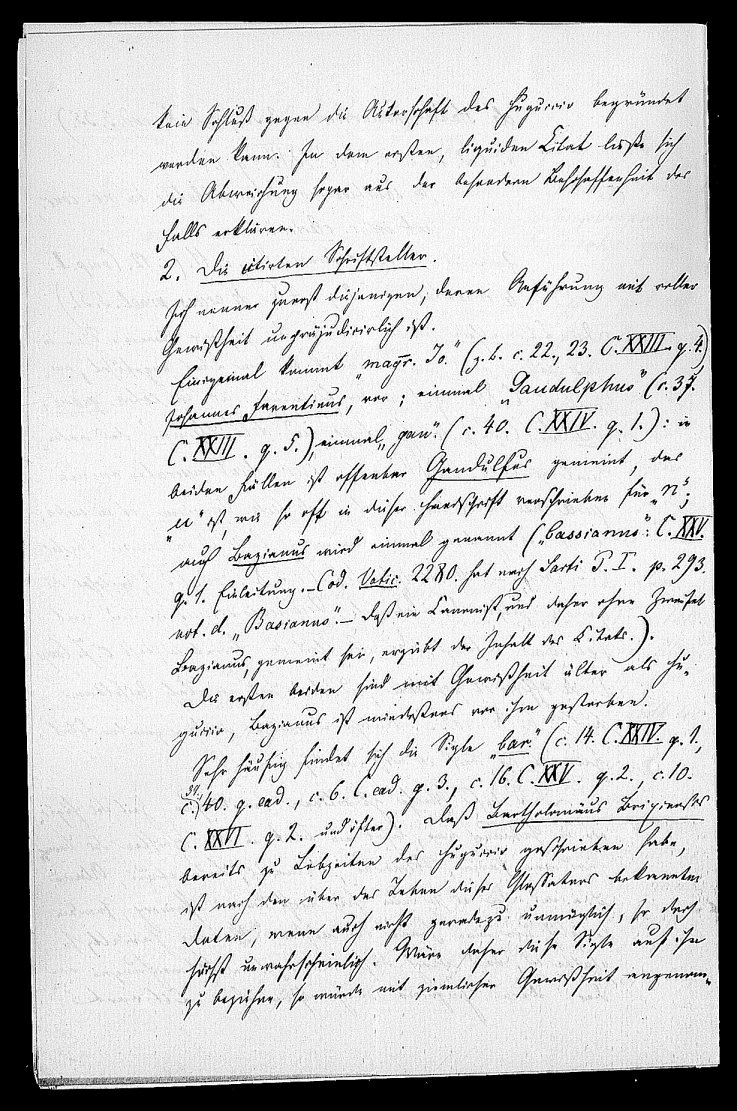 kein Schluß gegen die Autorschaft des Huguccio begründet
werden kann. In dem ersten, liquiden Citat ließe sich
die Abweichung sogar aus der besondern Beschaffenheit des
Falls erklären.
2. Die citirten Schriftsteller.
Ich nenne zuerst diejenigen, deren Anführung mit voller
Gewißheit unpräjudicirlich ist.
Einigemal kommt „magr. Jo.“ (z. b. c. 22., 23. C. XXIII. q. 4.)
Johannes Faventinus, vor; einmal „Gandulphus“ (c. 37.
C. XXIII. q. 5.), einmal „gau“. (c. 40. C. XXIV. q. 1.): in
beiden Fällen ist offenbar Gandulfus gemeint, das
„u“ ist, wie so oft in dieser Handschrift verschrieben für „n“;
auch Bazianus wird einmal genannt („bassianus“: C. XXV.
q. 1. Einleitung. – Cod. Vatic. 2280. hat nach Sarti P. I. p. 293.
not. d. „Basianus“ – daß ein Canonist, und daher ohne Zweifel
Bazianus, gemeint sei, ergibt der Inhalt des Citats.).
Die ersten beiden sind mit Gewißheit älter als Hu-
guccio, Bazianus ist mindestens vor ihm gestorben.
Sehr häufig findet sich die Sigle „bar“. (c. 14. C. XXIV. q. 1.,
c. 39. 40. q. ead., c. 6. C. ead. q. 3., c. 16. C. XXV. q. 2., c. 10.
C. XXVI. q. 2. und öfter). Daß Bartholomäus Brixiensis
bereits zu Lebzeiten des Huguccio geschrieben habe,
ist nach den über das Leben dieses Glossators bekannten
Daten, wenn auch nicht geradezu unmöglich, so doch
höchst unwahrscheinlich. Wäre daher diese Sigle auf ihn
zu beziehen, so würde mit ziemlicher Gewißheit angenom-